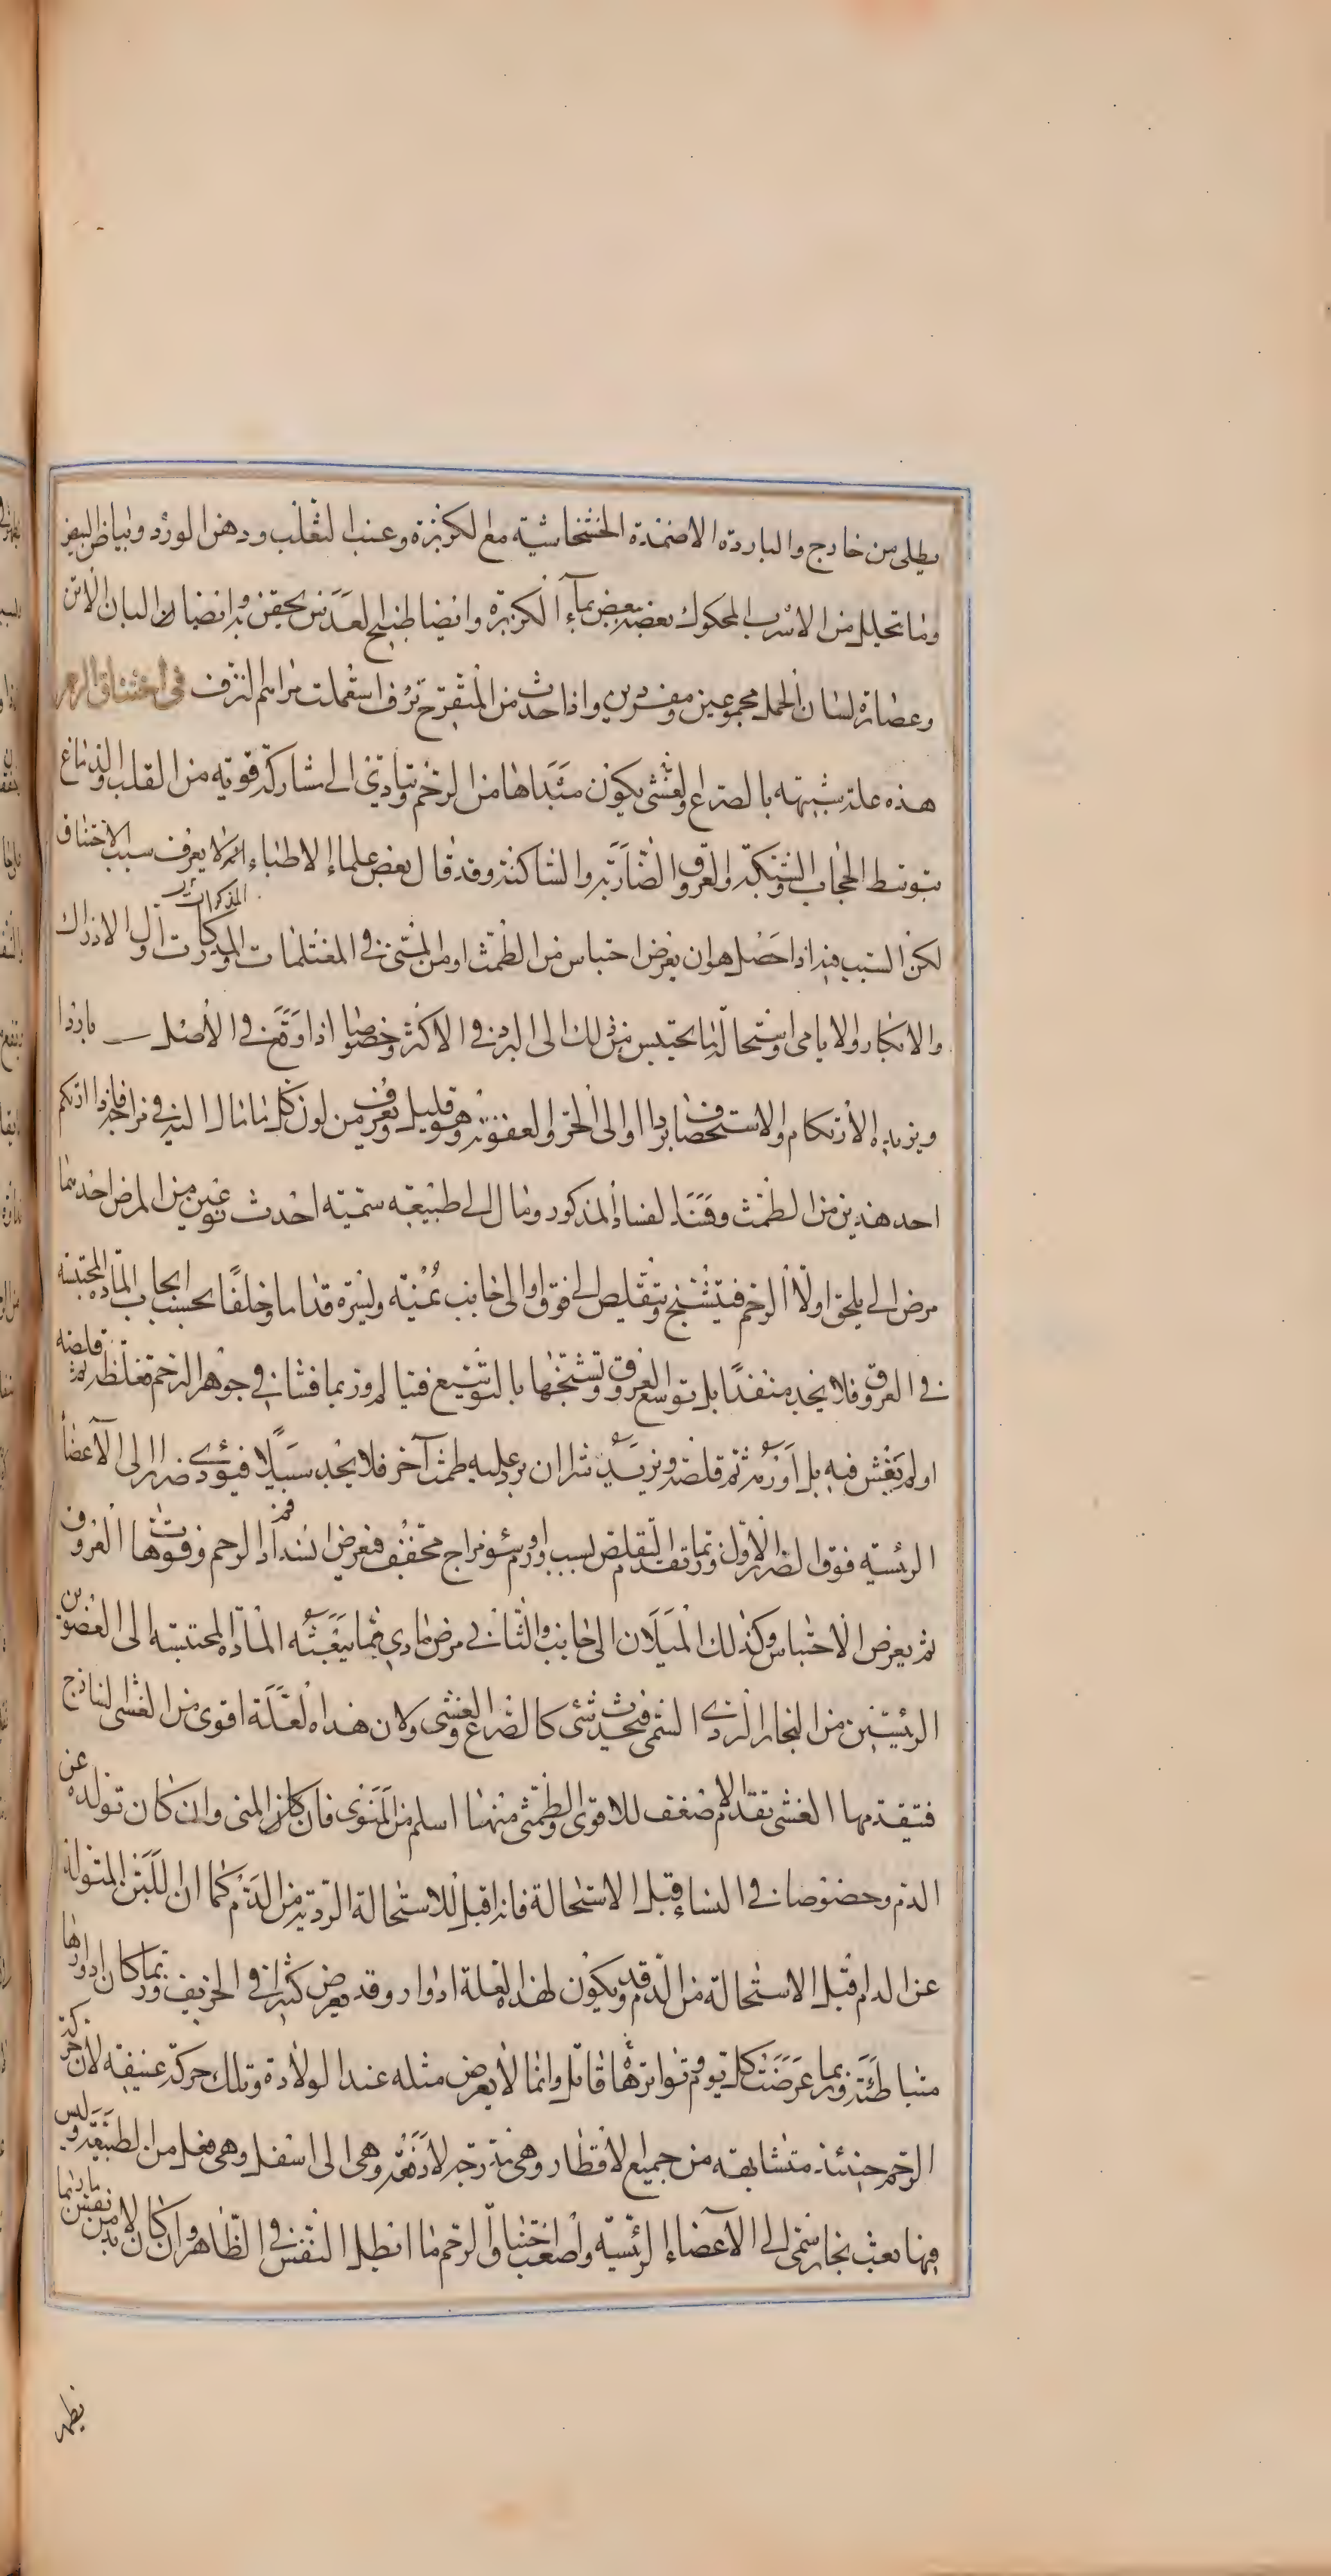 يطلى من خارج والباردة الاضمدة الخشخاشية مع الكزبرة وعنب الثعلب ودهن الورد وبياض البيض
وما تحلل من الاسرب المحكوك بعضه ببعض بماء الكزبرة وايضا طبيخ العدس يحقن به وايضا البان الاتن
وعصارة لسان الحمل مجموعين ومفردين واذا حدث من المتقرح نزف استعملت مراهم النزف في اختناق الرحم
هذه علة شبيهة بالصرع والغشي يكون مبداها من الرحم وتتادى الى مشاركة قوية من القلب والدماغ
بتوسط الحجاب والشبكة والعروق الضاربة والساكنة وقد قال بعض علماء الاطباء انه لا يعرف سبب الاختناق
لكن السبب فيه اذا حصل هو ان يعرض احتباس من الطمث او من المنى في المغتلمات والمدركات اول الادراك
المذكرات
والابكار والايامى واستحالة ما يحتبس من ذلك الى البرد في الاكثر وخصوصا اذا وقع في الاصل باردا
ويزيده الارتكام والاستحصاف بردا او الى الحر والعفونة وهو قليل ويعرف من لون كل ما مال اليه في مزاجه فاذا ارتكم
احد هذين من الطمث وفساد الفساد المذكور ومال الى طبيعة سمية احدث نوعين من المرض احدهما
مرض الى يلحق اولا الرحم فيتشنج ويتقلص الى فوق او الى جانب يمنة ويسرة قداما وخلفا بحسب ايجاب المادة المحتبسة
في العروق فلا يجد منفذا بل توسع العروق وتشنجها بالتوسيع فينالم وربما فشا في جوهر الرحم فغلظه ثم قلصه
او لم يفش فيه بل اورمه ثم قلصه ويزيده شرا ان يرد عليه طمث آخر فلا يجد سبيلا فيؤدي ضررا الى الاعضاء
الرئيسية فوق الضرر الاول وربما تقدم التقلص لسبب ورم او سوء مزاج مجفف فعرض انسداد فم الرحم وفوهات العروق
ثم يعرض الاحتباس وكذلك الميلان الى جانب والثاني مرض مادي فيما يبعثه المادة المحتبسة الى العضوين
الرئيسين من البخار الردى السمى فيحدث شئ كالصرع والغشي ولان هذه العلة اقوى من الغشى الساذج
فتتقدمها الغشى تقدم الاضعف للاقوى والطمثى منهما اسلم من المنوى فان كان المنى وان كان تولده عن
الدم وخصوصا في النساء قبل الاستحالة فانه اقبل للاستحالة الردية من الدم كما ان اللبن المتولد
عن الدم اقبل الاستحالة من الدم وقد يكون لهذه العلة ادوار وقد يعرض كثيرا في الخريف وربما كان ادوارها
متباطئة وربما عرضت كل يوم وتواترها قاتل وانما لا يعرض مثله عند الولادة وتلك حركة عنيفة لان حركة
الرحم حينئذ متشابهة من جميع الاقطار وهي متدرجة لا دفعة وهي الى اسفل وهي فعل من الطبيعة وليس
فيها بعث بخار سمى الى الاعضاء الرئيسة واصعب اختناق الرحم ما ابطل النفس في الظاهر وان كان لا بد من نفس ما ربما
يظهر